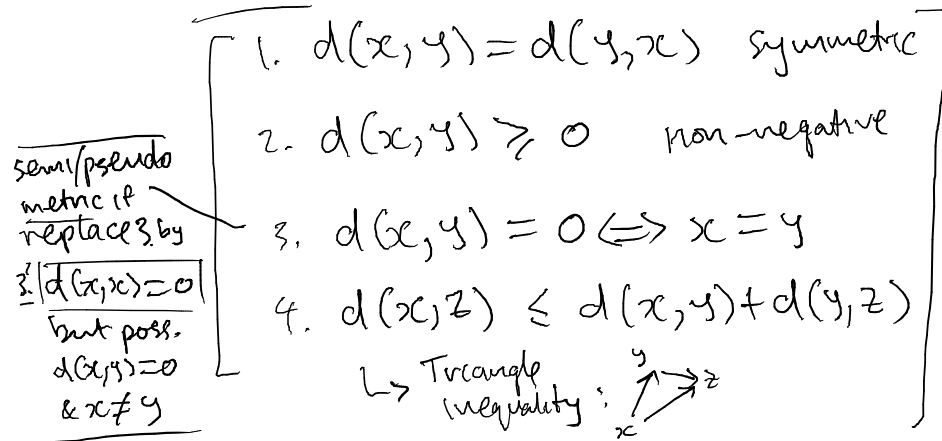 1. d(x,y) = d(y,x) symmetric
2. d(x,y) ⩾ 0 non-negative
3. d(x,y) = 0 ⟺ x = y
4. d(x,z) ≤ d(x,y) + d(y,z)
↳ Triangle
inequality:
y
z
x
semi/pseudo
metric if
replace 3. by
3.' d(x,x) = 0
but poss.
d(x,y) = 0
& x ≠ y